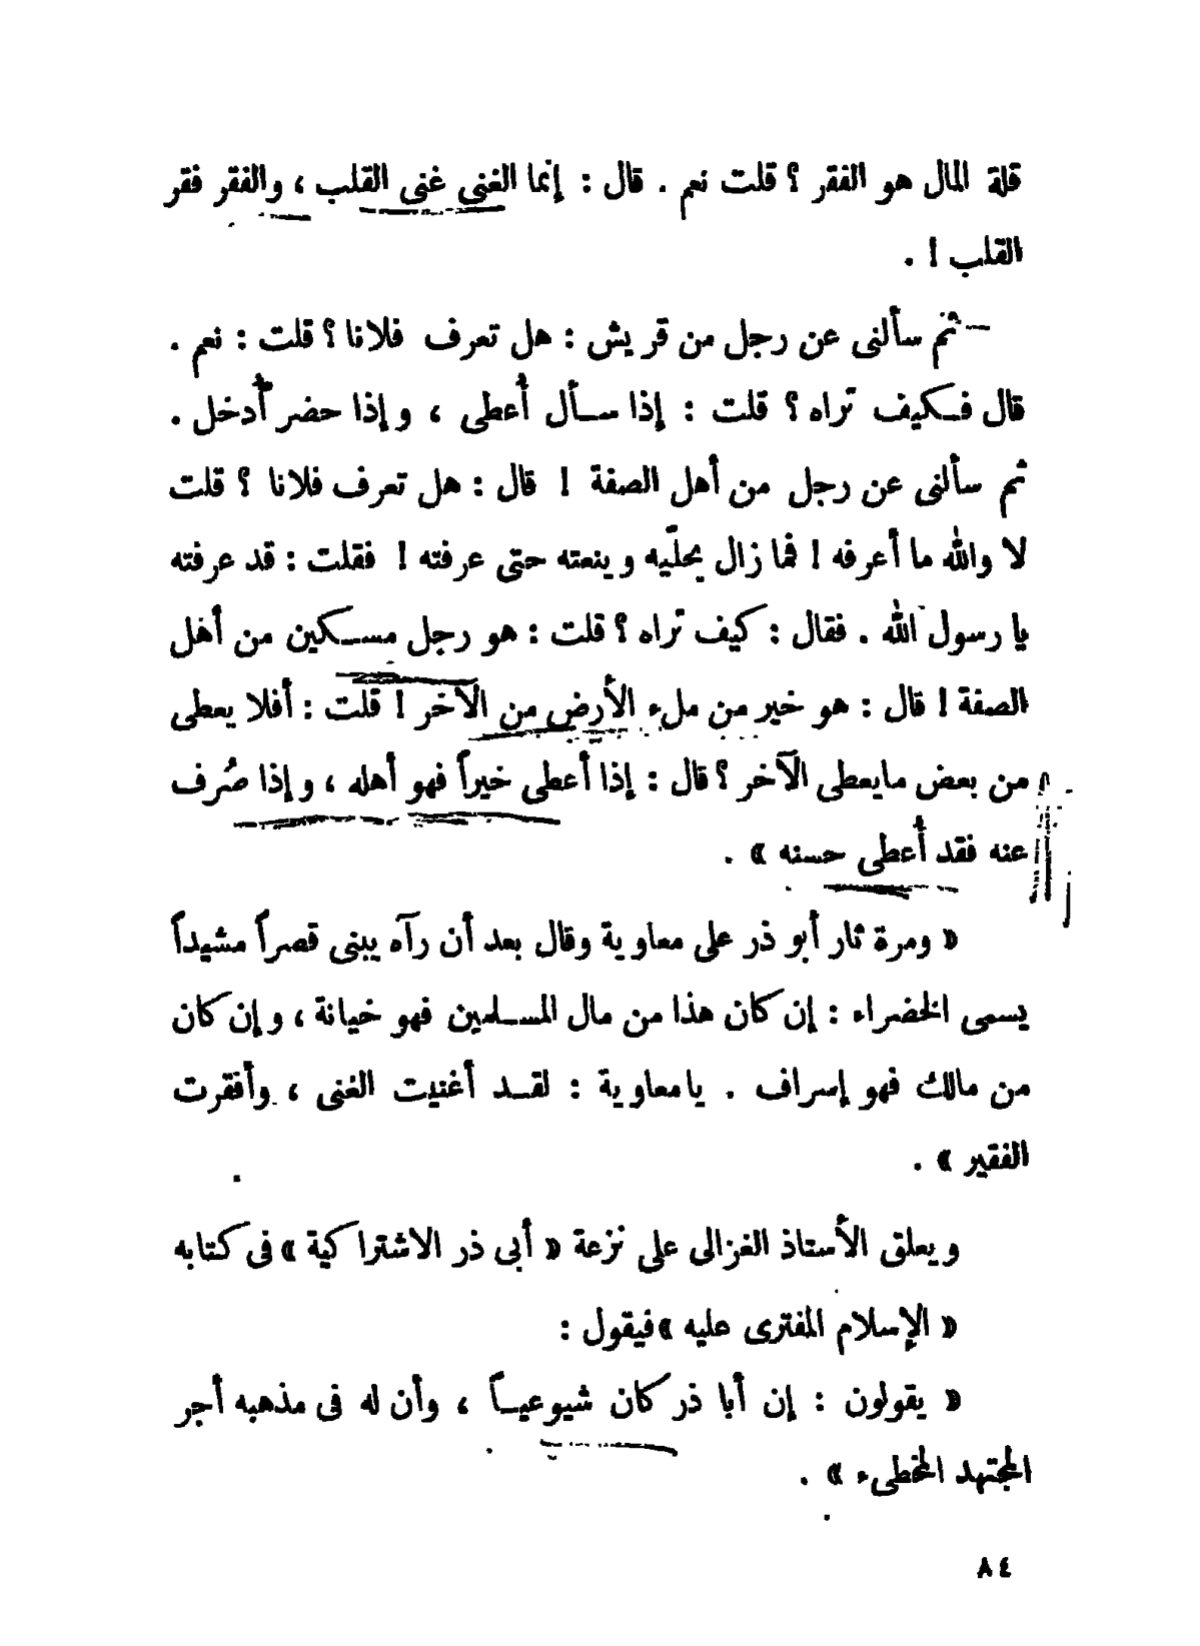 قلة المال هو الفقر ؟ قلت نعم . قال : إنما الغنى غنى القلب ، والفقر فقر
القلب ! .
– ثم سألنى عن رجل من قريش : هل تعرف فلانا ؟ قلت : نعم .
قال فكيف تراه ؟ قلت : إذا سأل أُعطى ، وإذا حضر أُدخل .
ثم سألنى عن رجل من أهل الصفة ! قال : هل تعرف فلانا ؟ قلت
لا والله ما أعرفه ! فما زال يحلّيه وينعته حتى عرفته ! فقلت : قد عرفته
يا رسول الله . فقال : كيف تراه ؟ قلت : هو رجل مسكين من أهل
الصفة ! قال : هو خير من ملء الأرض من الآخر ! قلت : أفلا يعطى
من بعض مايعطى الآخر ؟ قال : إذا أعطى خيراً فهو أهله ، وإذا صُرف
عنه فقد أُعطى حسنه » .
« ومرة ثار أبو ذر على معاوية وقال بعد أن رآه يبنى قصراً مشيداً
يسمى الخضراء : إن كان هذا من مال المسلمين فهو خيانة ، وإن كان
من مالك فهو إسراف . يامعاوية : لقد أغنيت الغنى ، وأفقرت
الفقير » .
ويعلق الأستاذ الغزالى على نزعة « أبى ذر الاشتراكية » فى كتابه
« الإسلام المفترى عليه » فيقول :
« يقولون : إن أبا ذر كان شيوعياً ، وأن له فى مذهبه أجر
المجتهد المخطىء » .
٨٤